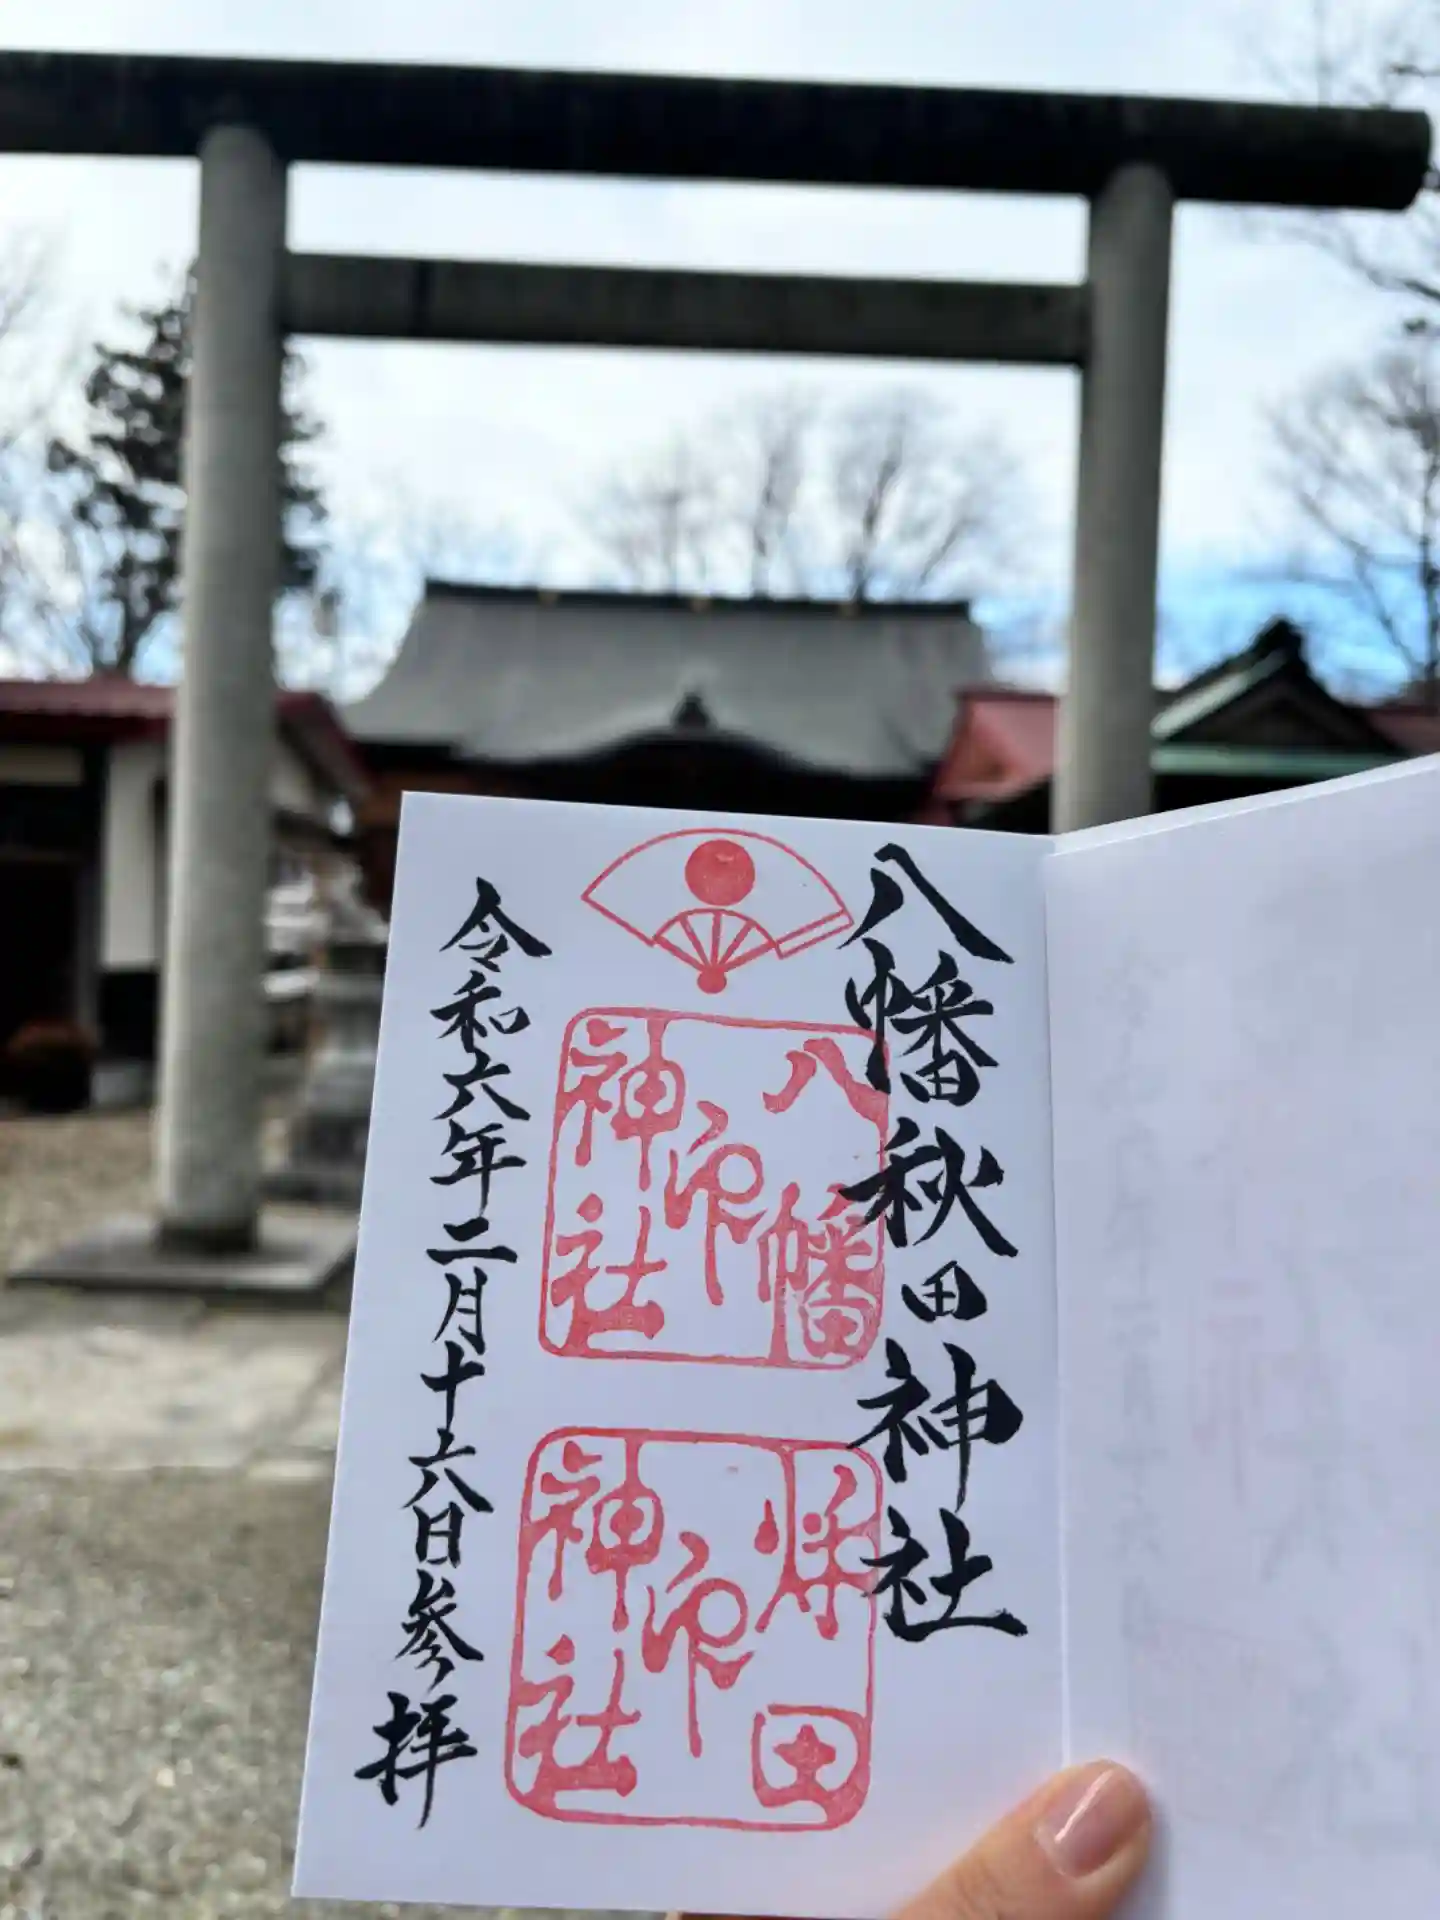 八幡秋田神社
八幡
神社
印
秋田
神社
印
令和六年二月十六日参拝